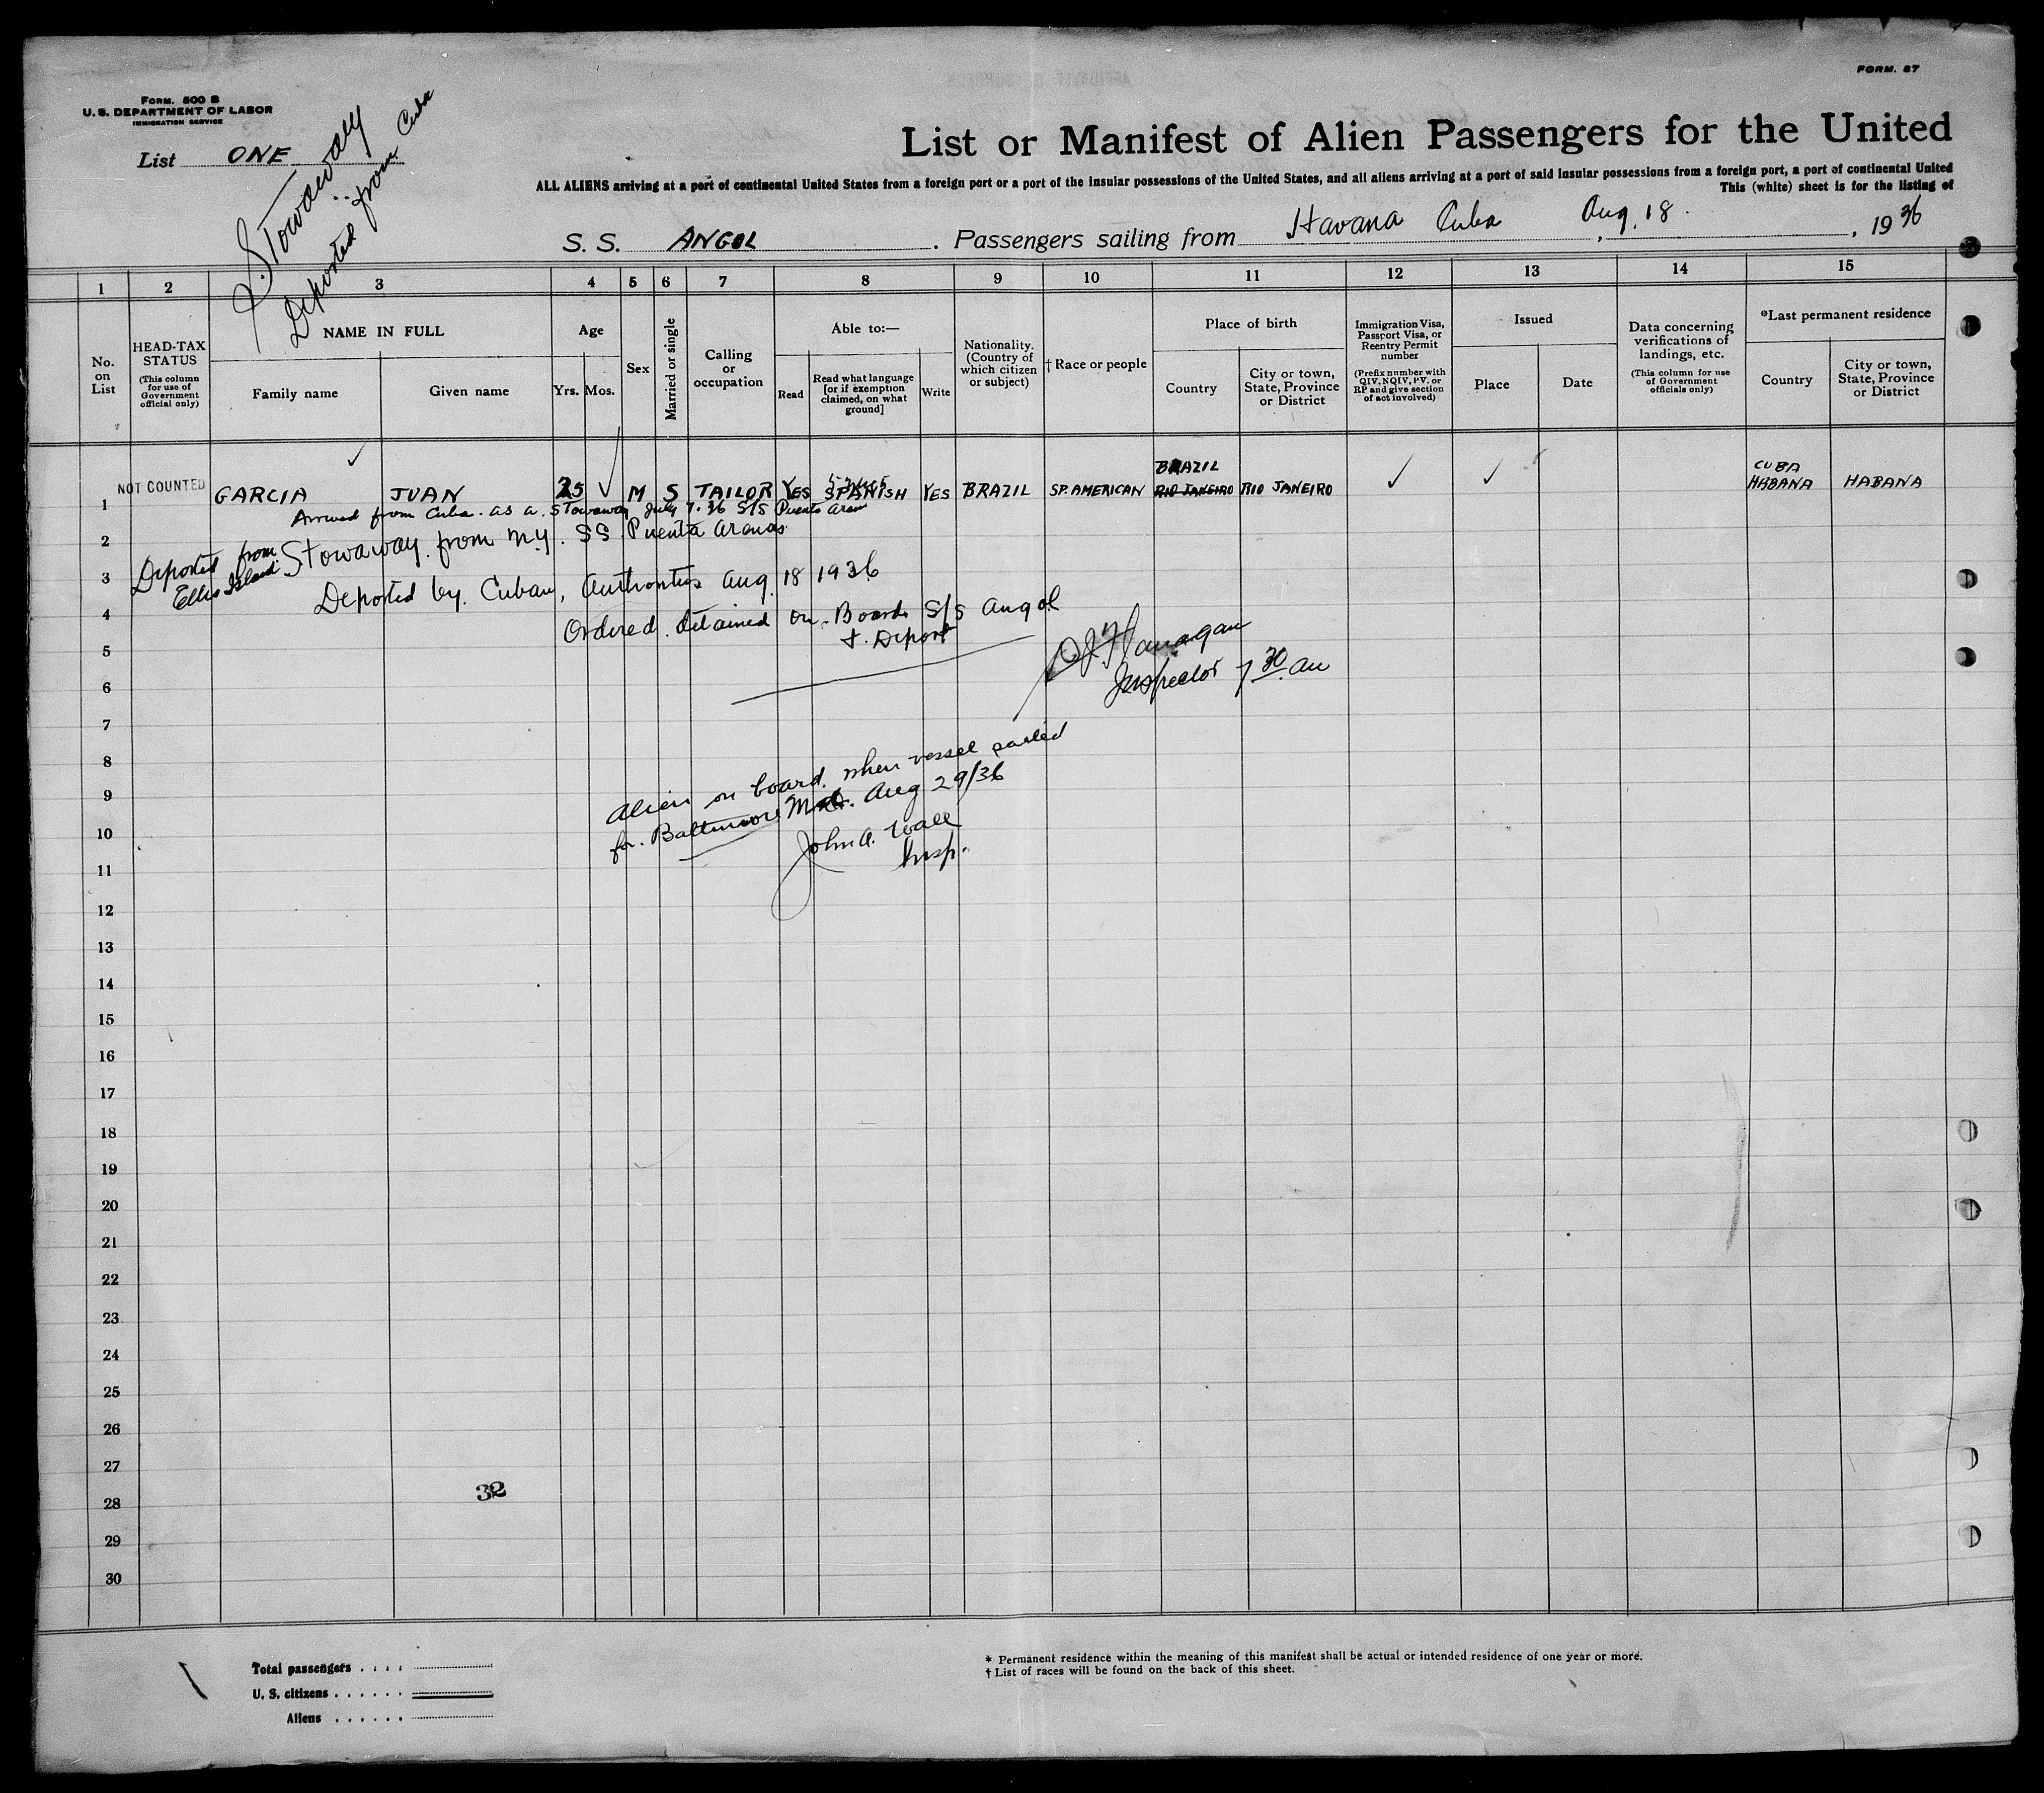 FORM. 87
FORM. 500 B
U. S. DEPARTMENT OF LABOR
IMMIGRATION SERVICE
List ONE
Stowaway
Deported from Cuba
List or Manifest of Alien Passengers for the United
ALL ALIENS arriving at a port of continental United States from a foreign port or a port of the insular possessions of the United States, and all aliens arriving at a port of said insular possessions from a foreign port, a port of continental United
This (white) sheet is for the listing of
S. S. ANGOL. Passengers sailing from Havana Cuba Aug. 18., 1936
1 2 3 4 5 6 7 8 9 10 11 12 13 14 15
No. on List
HEAD-TAX STATUS
(This column for use of Government official only)
NAME IN FULL
Family name
Given name
Age
Yrs. Mos.
Sex
Married or single
Calling or occupation
Able to:—
Read
Read what language [or if exemption claimed, on what ground]
Write
Nationality. (Country of which citizen or subject)
† Race or people
Place of birth
Country
City or town, State, Province or District
Immigration Visa, Passport Visa, or Reentry Permit number
(Prefix number with QIV, NQIV, PV. or RP and give section of act involved)
Issued
Place
Date
Data concerning verifications of landings, etc.
(This column for use of Government officials only)
*Last permanent residence
Country
City or town, State, Province or District
BRAZIL CUBA
1 NOT COUNTED GARCIA JUAN 25 M S TAILOR YES SPANISH YES BRAZIL SP. AMERICAN RIO JANEIRO RIO JANEIRO HABANA HABANA
Arrived from Cuba. as a Stowaway July 7. 36 S/S Puenta Arenas
2 Stowaway. from N.Y. SS Puenta Arenas
Deported from
Ellis Island
3 Deported by. Cuban, Authorities Aug. 18 1936
4 Ordered. detained on. Board S/S Angol
& Deport
5 Flanagan
6 Inspector 7 30 am
7
8 Alien on board. when vessel sailed
9 for. Baltimore Md. Aug 29/36
10 John A. Wall
11 Insp.
12
13
14
15
16
17
18
19
20
21
22
23
24
25
26
27
28 32
29
30
Total passengers . . . .
U. S. citizens . . . . . .
Aliens . . . . . .
* Permanent residence within the meaning of this manifest shall be actual or intended residence of one year or more.
† List of races will be found on the back of this sheet.